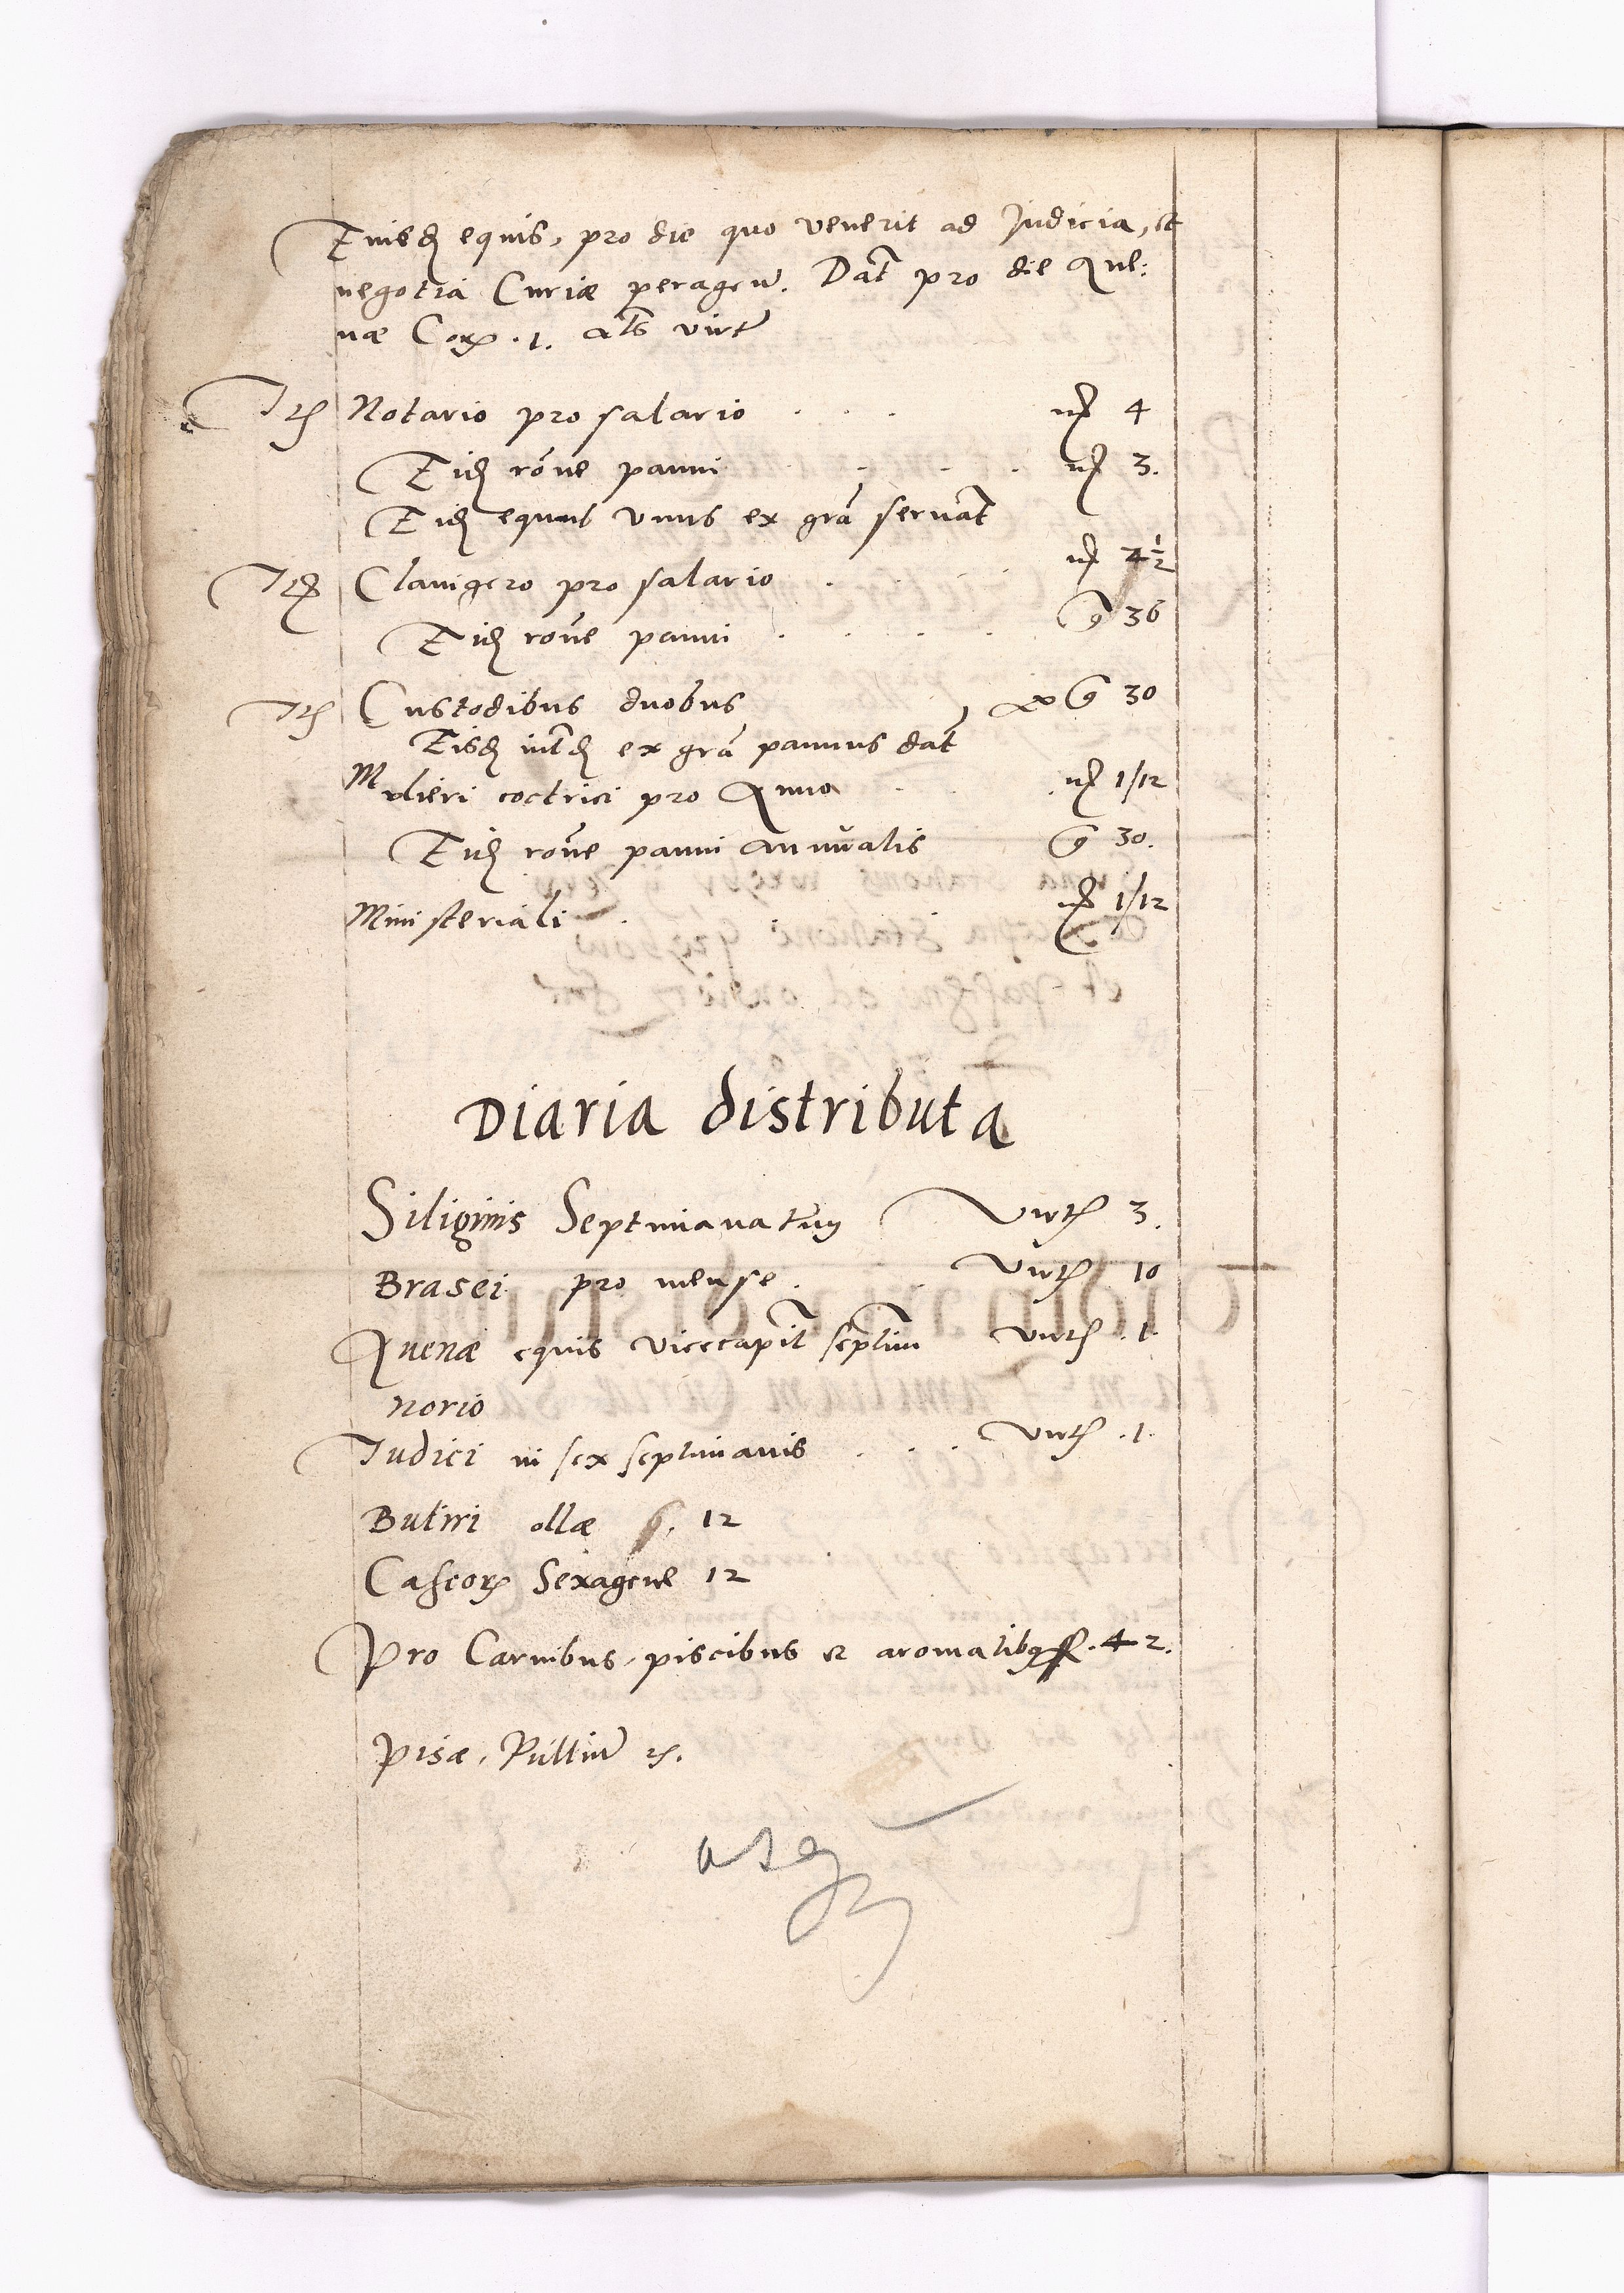 Eiusd equis, pro die quo venerit ad Judicia, et
negotia Curiæ peragen. Dat pro die Ave:
næ Cor 1. als virt
It Notario pro salario . . . mr 4
Eid rone panni . . . mr 3.
Eid equus unus ex gra servat
It Clavigero pro salario . . . mr 4½
Eid rone panni . . . . g 36
It Custodibus duobus per g 30
Eisd intd ex gra pannus dat
Mulieri coctrici pro Anno mr 1/12
Eid rone panni annualis g 30.
Ministeriali . . . mr 1/12
Diaria distributa
Siliginis Septimanatim Virt 3.
Brasei pro mense . . Virt 10
Avenæ equis vicecapit septim virt .1.
norio
Judici in sex septimanis . . . Virt .1.
Butiri ollæ 12
Caseor Sexagene 12
Pro Carnibus, piscibus et aromatibq f. 42.
Pisæ, Pultium